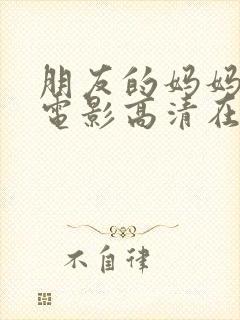 朋友的妈妈
电影高清在
不自律